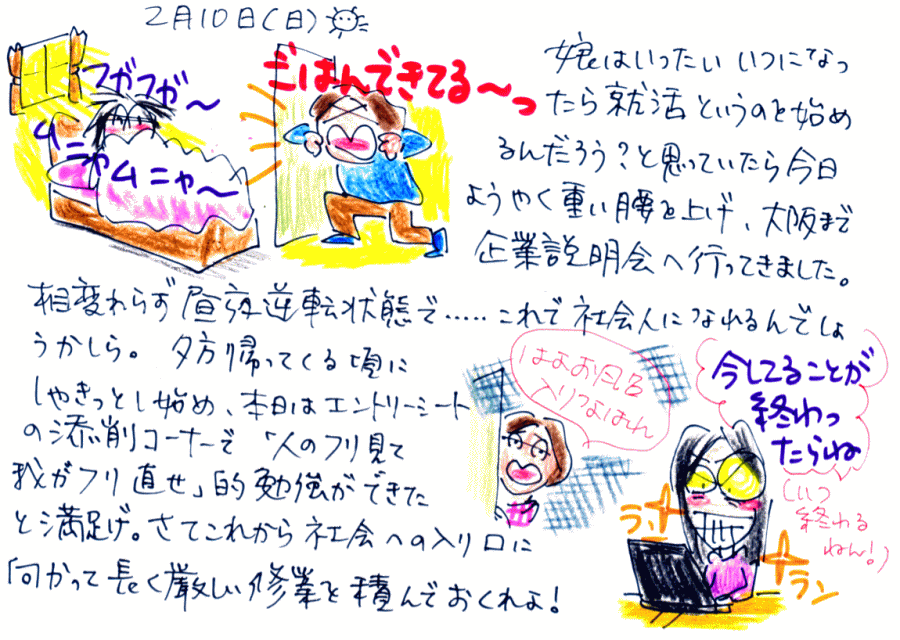 2月10日(日)
ごはんできてる〜っ
フガフガ〜
ムニャ
ムニャ〜
娘はいったい いつになっ
たら就活というのを始め
るんだろう?と思っていたら今日
ようやく重い腰を上げ、大阪まで
企業説明会へ行ってきました。
相変わらず昼夜逆転状態で.....これで社会人になれるんでしょ
うかしら。夕方帰ってくる頃に
しゃきっとし始め、本日はエントリーシート
の添削コーナーで「人のフリ見て
我がフリ直せ」的勉強ができた
と満足げ。さてこれから社会への入り口に
向かって長く厳しい修業を積んでおくれよ!
はよお風呂
入りなはれ
今してることが
終わっ
たらね
(いつ
終わる
ねん!)
ラン
ラン